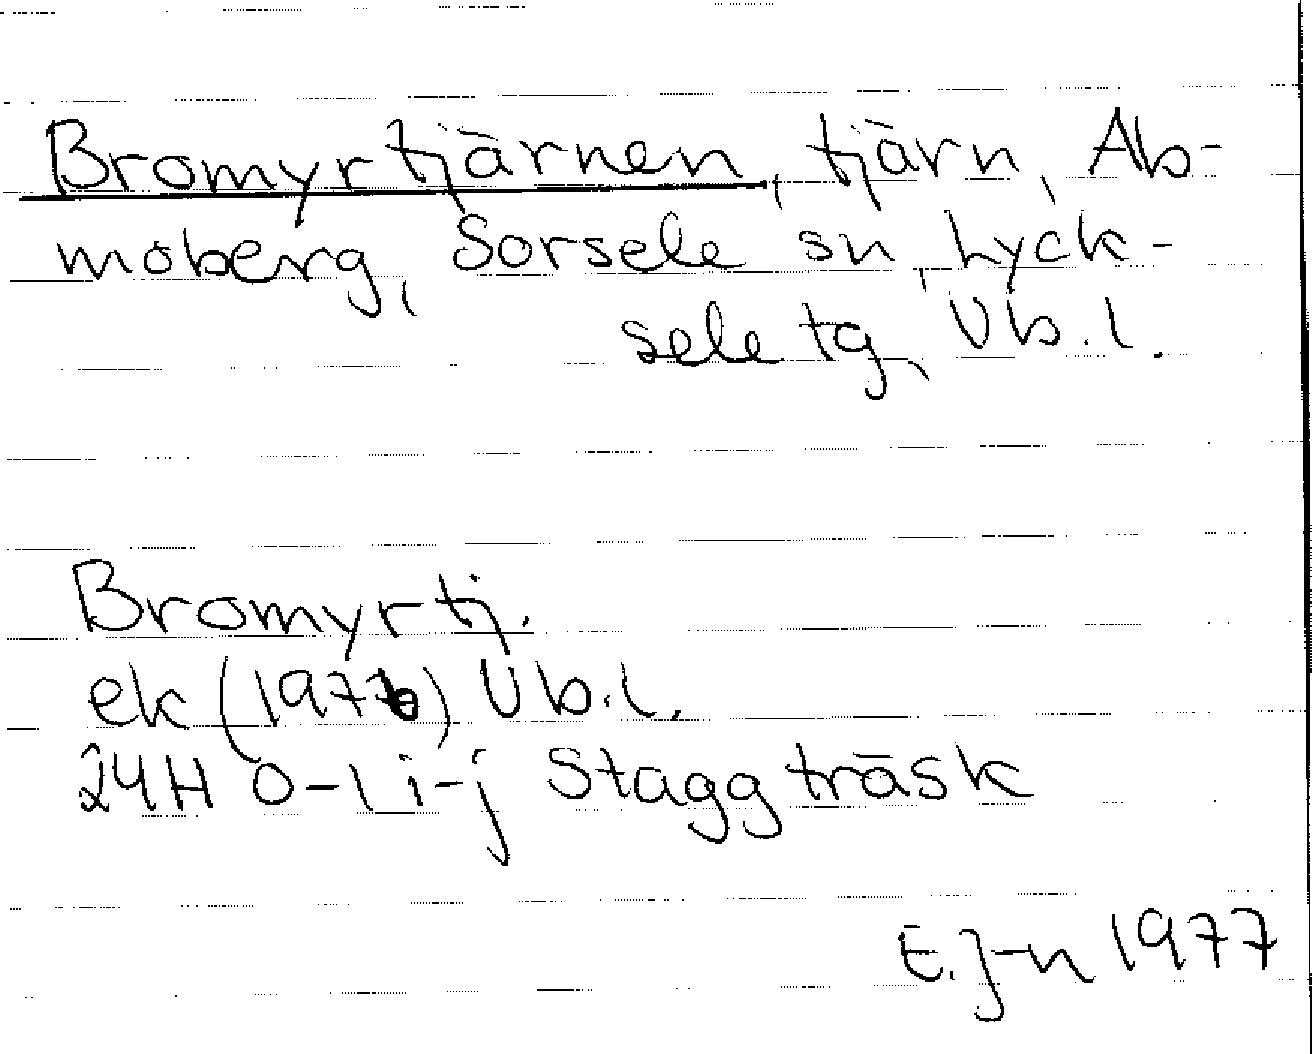 Bromyrtjärnen, tjärn, Ab-
moberg, Sorsele sn, Lyck-
sele tg, Vb.l.
Bromyrtj.
ek (1976) Vb.l.
24H 0-1 i-j Staggträsk
E.J-n 1977